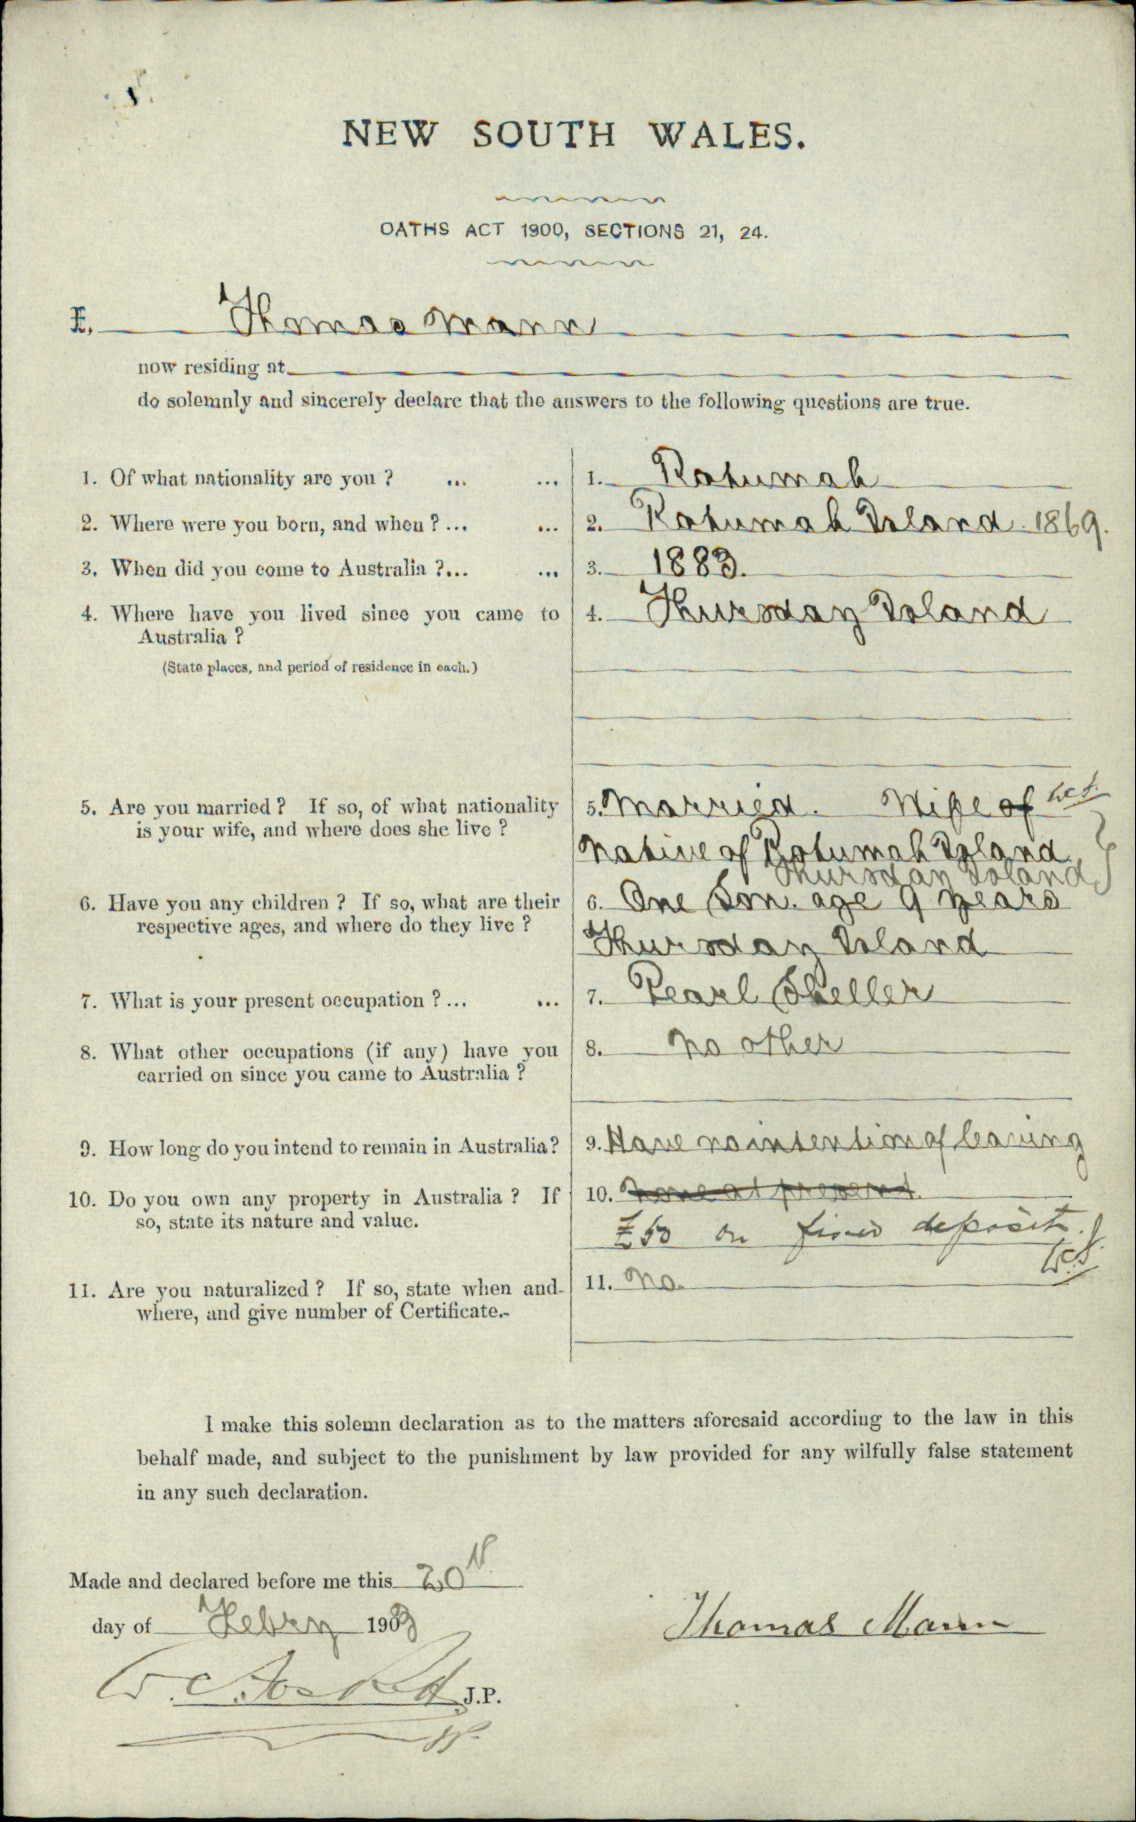 NEW SOUTH WALES.
OATHS ACT 1900, SECTIONS 21, 24.
I, Thomas Mann
now residing at
do solemnly and sincerely declare that the answers to the following questions are true.
1. Of what nationality are you ? ... ... 1. Rotumah
2. Where were you born, and when ? ... ... 2. Rotumah Island. 1869.
3. When did you come to Australia ?... ... 3. 1883.
4. Where have you lived since you came to 4. Thursday Island
Australia ?
(State places, and period of residence in each.)
5. Are you married ? If so, of what nationality 5. Married. Wife of
is your wife, and where does she live ? Native of Rotumah Island
Thursday Island
6. Have you any children ? If so, what are their 6. One Son. age 9 years
respective ages, and where do they live ? Thursday Island
7. What is your present occupation ? ... ... 7. Pearl Sheller
8. What other occupations (if any) have you 8. No other
carried on since you came to Australia ?
9. How long do you intend to remain in Australia? 9. Have no intention of leaving
10. Do you own any property in Australia ? If 10. None at present.
so, state its nature and value. £50 on fixed deposit.
11. Are you naturalized ? If so, state when and 11. No.
where, and give number of Certificate.-
I make this solemn declaration as to the matters aforesaid according to the law in this
behalf made, and subject to the punishment by law provided for any wilfully false statement
in any such declaration.
Made and declared before me this 20th
day of Febry 1903 Thomas Mann
J.P.